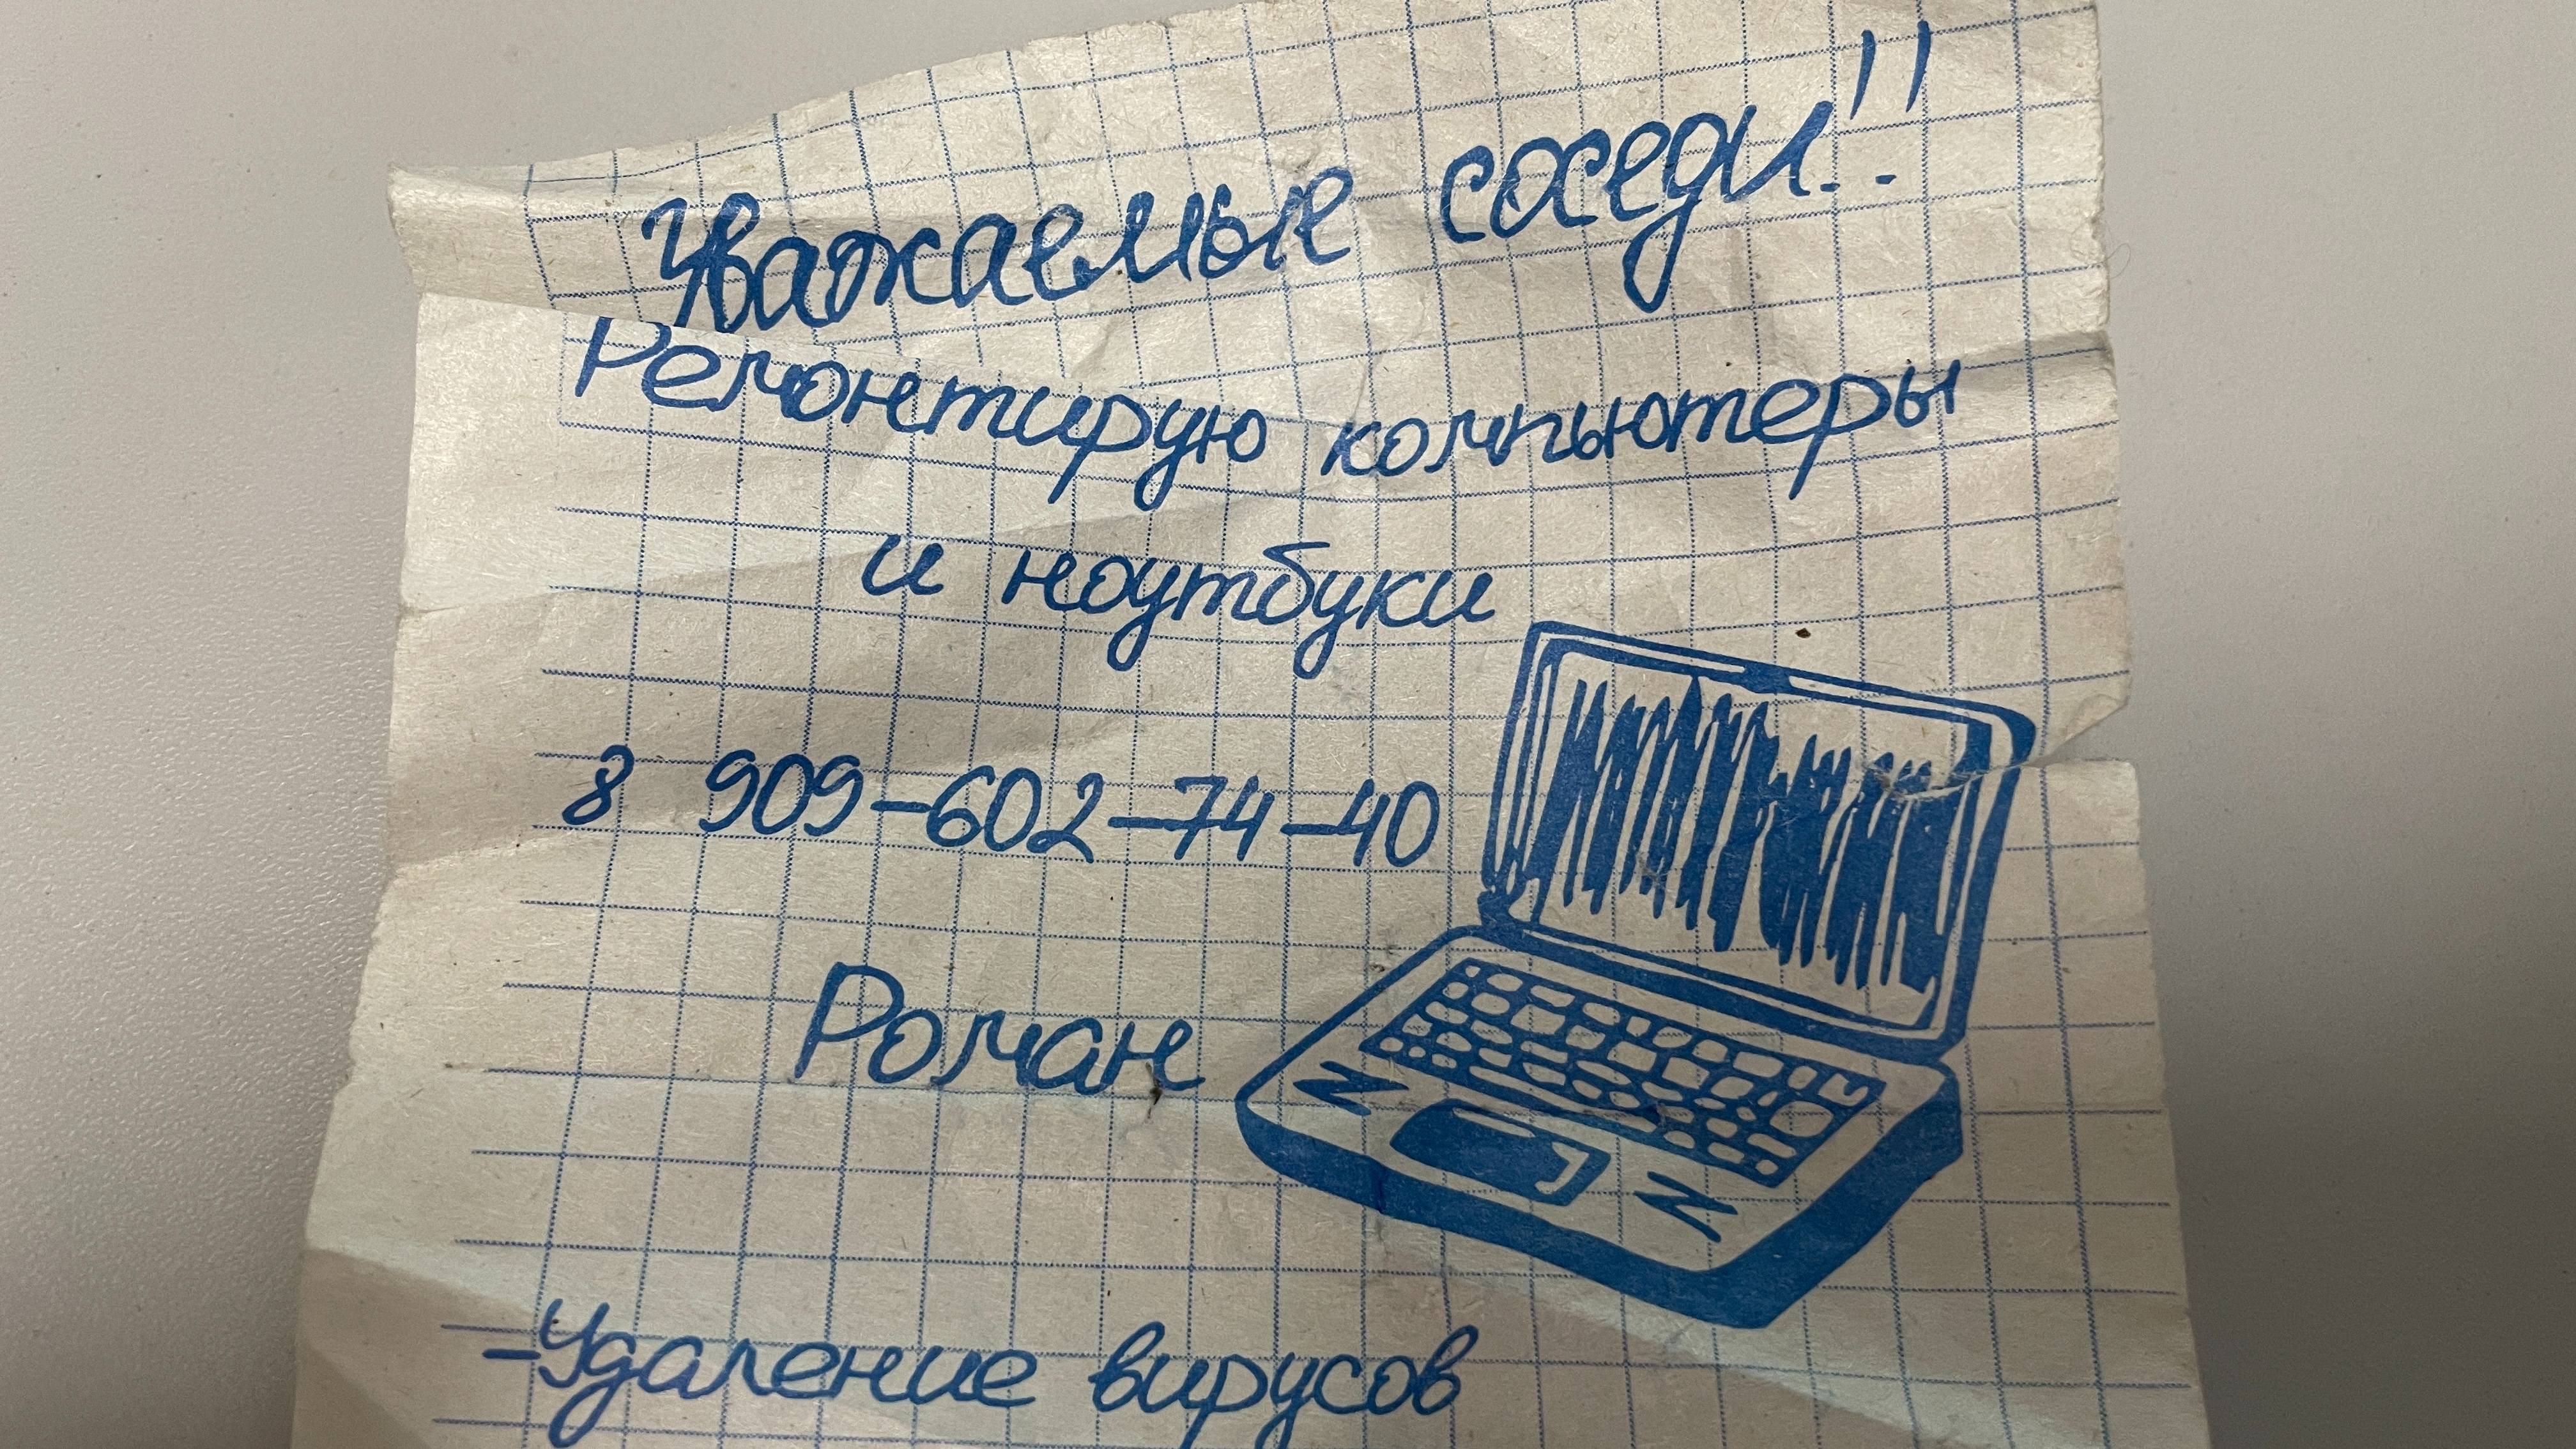 Уважаемые соседи!!
Ремонтирую компьютеры
и ноутбуки
8 909-602-74-40
Роман
-Удаление вирусов